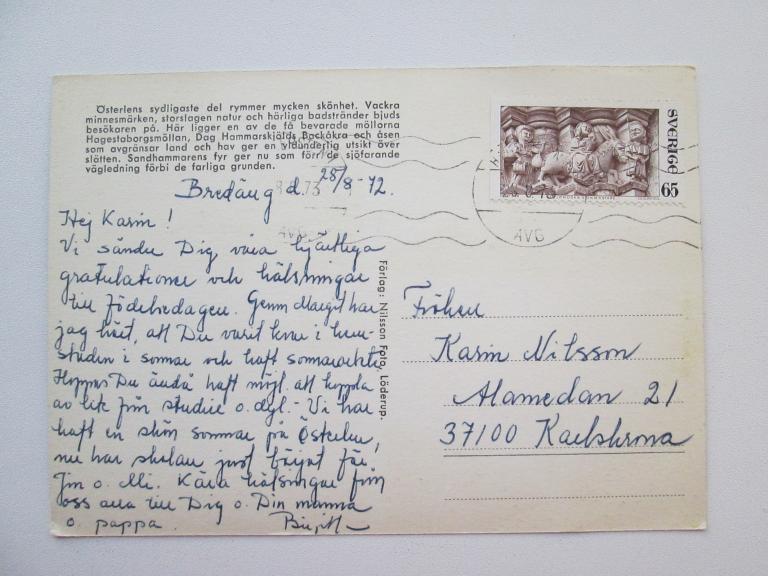 Österlens sydligaste del rymmer mycken skönhet. Vackra
minnesmärken, storslagen natur och härliga badstränder bjuds
besökaren på. Här ligger en av de få bevarade möllorna
Hagestaborgsmöllan, Dag Hammarskjölds Backåkra och åsen
som avgränsar land och hav ger en vidunderlig utsikt över
slätten. Sandhammarens fyr ger nu som förr de sjöfarande
vägledning förbi de farliga grunden.
SVERIGE
65
AVG
AVG
Bredäng d. 28/8-72.
Hej Karin!
Vi sänder Dig våra hjärtliga
gratulationer och hälsningar
till födelsedagen. Genom Margit har
jag hört, att Du varit kvar i hem-
staden i sommar och haft sommararbete
Hoppas Du ändå haft möjl. att koppla
av lite från studier o. dyl. - Vi har
haft en skön sommar på Österlen,
nu har skolan just börjat för
o. Kära hälsningar från
oss alla till Dig o. Din mamma
o. pappa. Birgitt
Förlag: Nilsson Foto, Löderup.
Fröken
Karin Nilsson
Alamedan 21
37100 Karlskrona